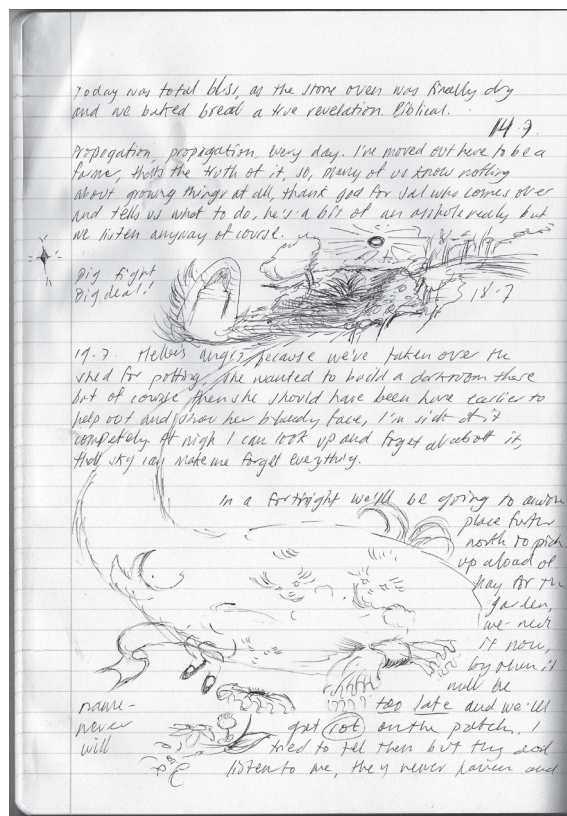 Today was total bliss, as the stone oven was finally dry
and we baked bread a true revelation. Biblical.
14.7
Propagation, propagation, every day. I've moved out here to be a
farmer, thats the truth of it, so, many of us know nothing
about growing things at all, thank god for Sal who comes over
and tells us what to do, he's a bit of an asshole really but
we listen anyway of course.
Big fight
Big deal!
18.7
19.7. angry because we've taken over the
shed for potting, she wanted to build a darkroom there
but of course then she should have been here earlier to
help out and show her bloody face, I'm sick of it
completely. At nigh I can look up and forget all about it,
that sky can make me forget everything.
In a fortnight we'll be going to another
place further
north to pick
up a load of
hay for the
garden,
we need
it now,
by then it
will be
too late and we'll
get rot on the patch, I
tried to tell them but they dont
listen to me, they never and
name-
never
will